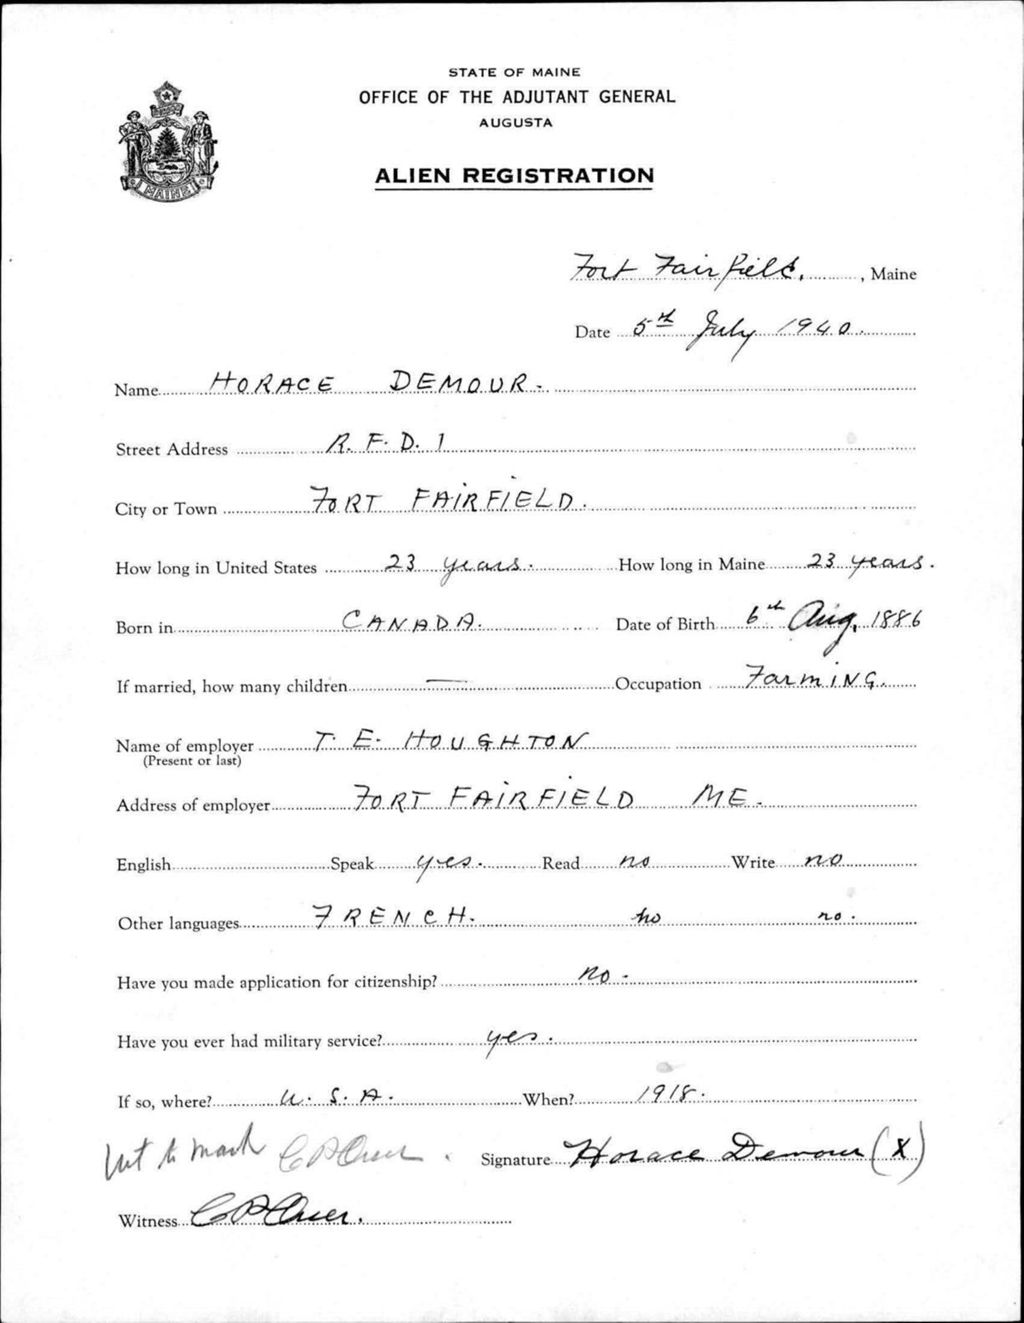 STATE OF MAINE
OFFICE OF THE ADJUTANT GENERAL
AUGUSTA
ALIEN REGISTRATION
MAINE
Fort Fairfield, , Maine
Date 5th July 1940
Name HORACE DEMOUR.
Street Address R. F. D. 1
City or Town FORT FAIRFIELD.
How long in United States 23 years. How long in Maine 23 years.
Born in CANADA. Date of Birth 6th Aug, 1886
If married, how many children — Occupation Farming.
Name of employer T. E. HOUGHTON
(Present or last)
Address of employer FORT FAIRFIELD ME.
English Speak yes. Read no Write no
Other languages FRENCH. no no.
Have you made application for citizenship? no.
Have you ever had military service? yes.
If so, where? U. S. A. When? 1918.
to mark Signature Horace Demour (X)
Witness